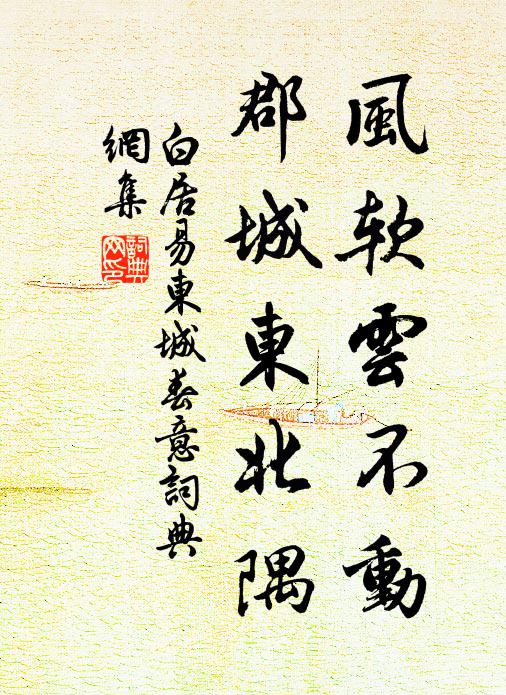 風軟雲不動
郡城東北隅
白居易東城春意詞典
網集
詞典
网印